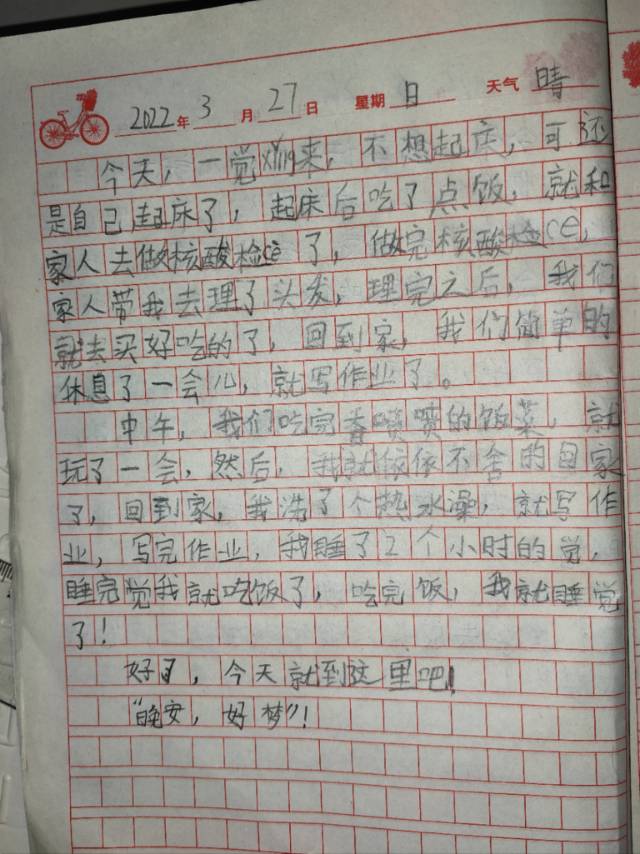 2022年3月27日 星期日 天气晴
今天，一觉xing来，不想起床，可还
是自己起床了，起床后吃了点饭，就和
家人去做核酸检ce了，做完核酸检ce，
家人带我去理了头发，理完之后，我们
就去买好吃的了，回到家，我们简单的
休息了一会儿，就写作业了。
中午，我们吃完香喷喷的饭菜，就
玩了一会，然后，我就依依不舍的回家
了，回到家，我洗了个热水澡，就写作
业，写完作业，我睡了2个小时的觉，
睡完觉我就吃饭了，吃完饭，我就睡觉
了！
好了，今天就到这里吧！
“晚安，好梦”！